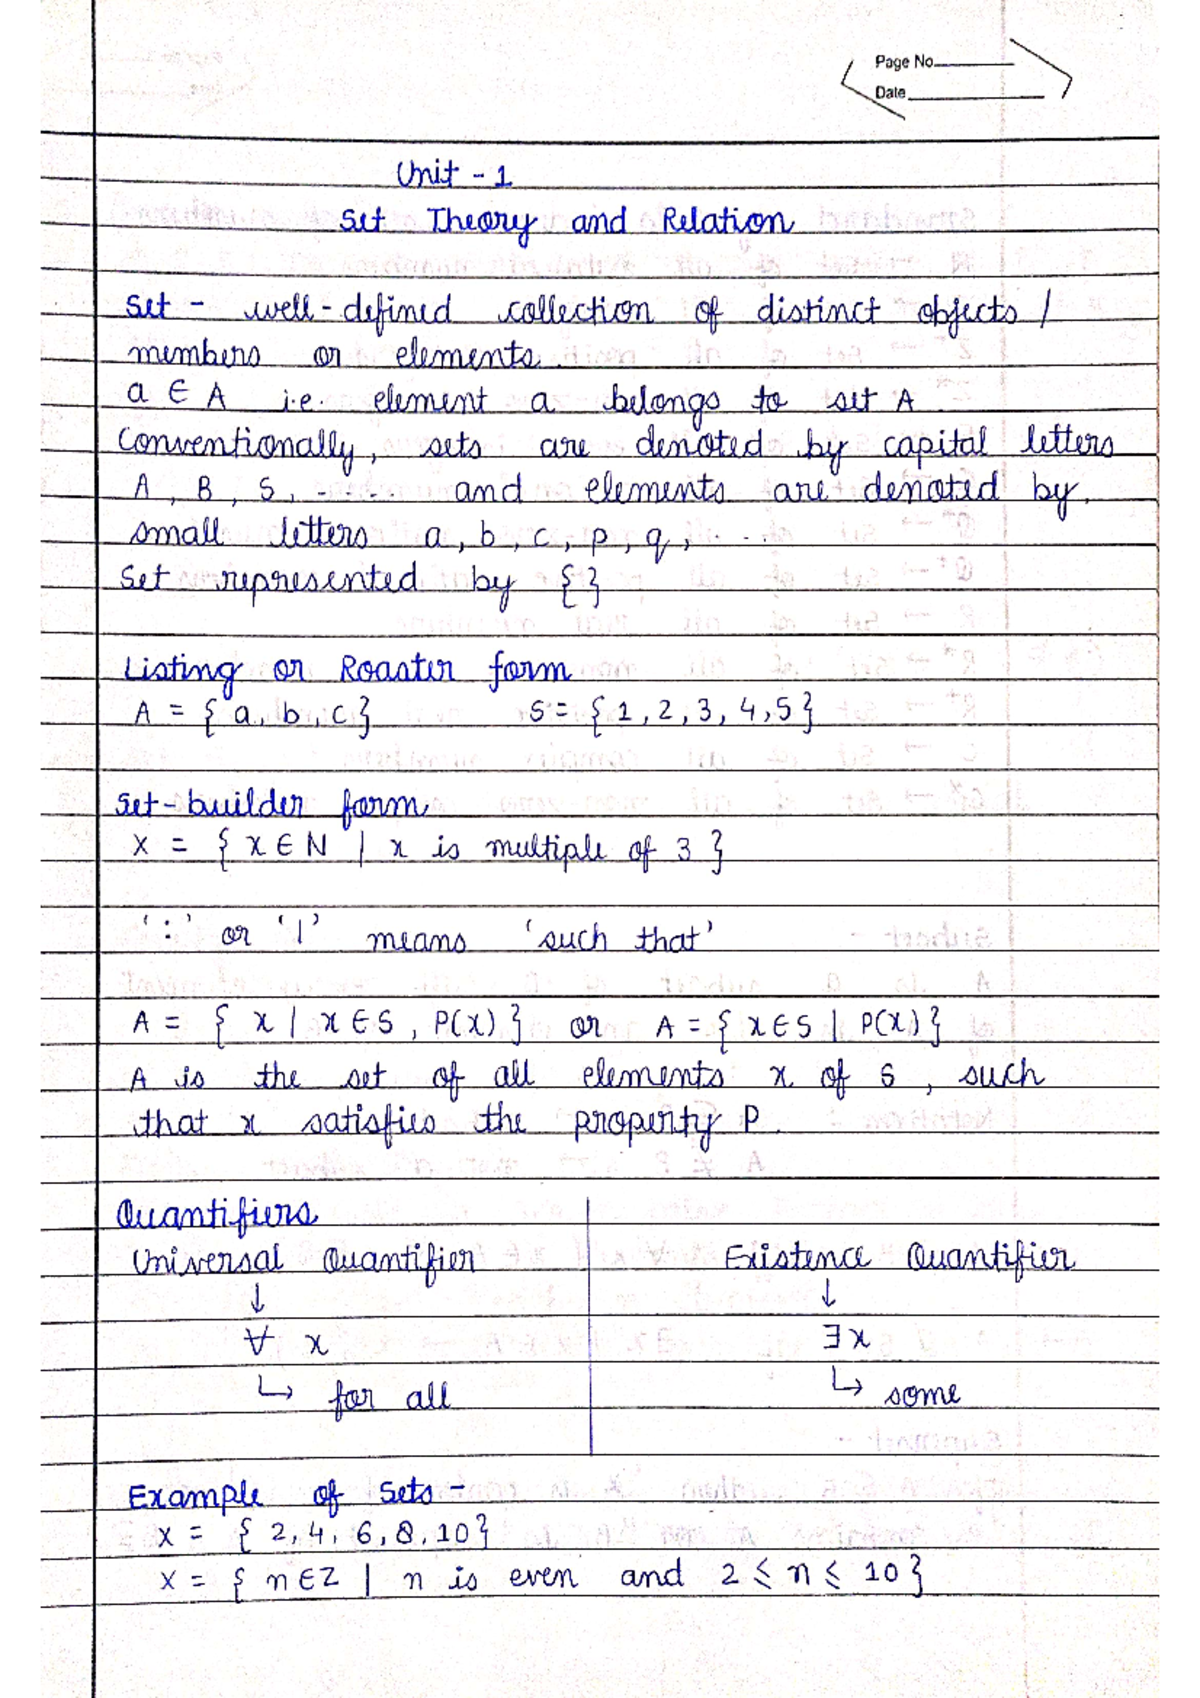 Page No.
Date
Unit - 1
Set Theory and Relation
Set - well-defined collection of distinct objects /
members or elements.
a ∈ A i.e. element a belongs to set A
Conventionally, sets are denoted by capital letters
A, B, S, ..... and elements are denoted by
small letters a, b, c, p, q, ...
Set represented by { }
Listing or Roaster form
A = { a, b, c } S = { 1, 2, 3, 4, 5 }
Set-builder form
X = { x ∈ N | x is multiple of 3 }
':' or '|' means 'such that'
A = { x | x ∈ S, P(x) } or A = { x ∈ S | P(x) }
A is the set of all elements x of S, such
that x satisfies the property P.
Quantifiers
Universal Quantifier Existence Quantifier
↓ ↓
∀ x ∃ x
↳ for all ↳ some
Example of Sets -
X = { 2, 4, 6, 8, 10 }
X = { n ∈ Z | n is even and 2 ≤ n ≤ 10 }